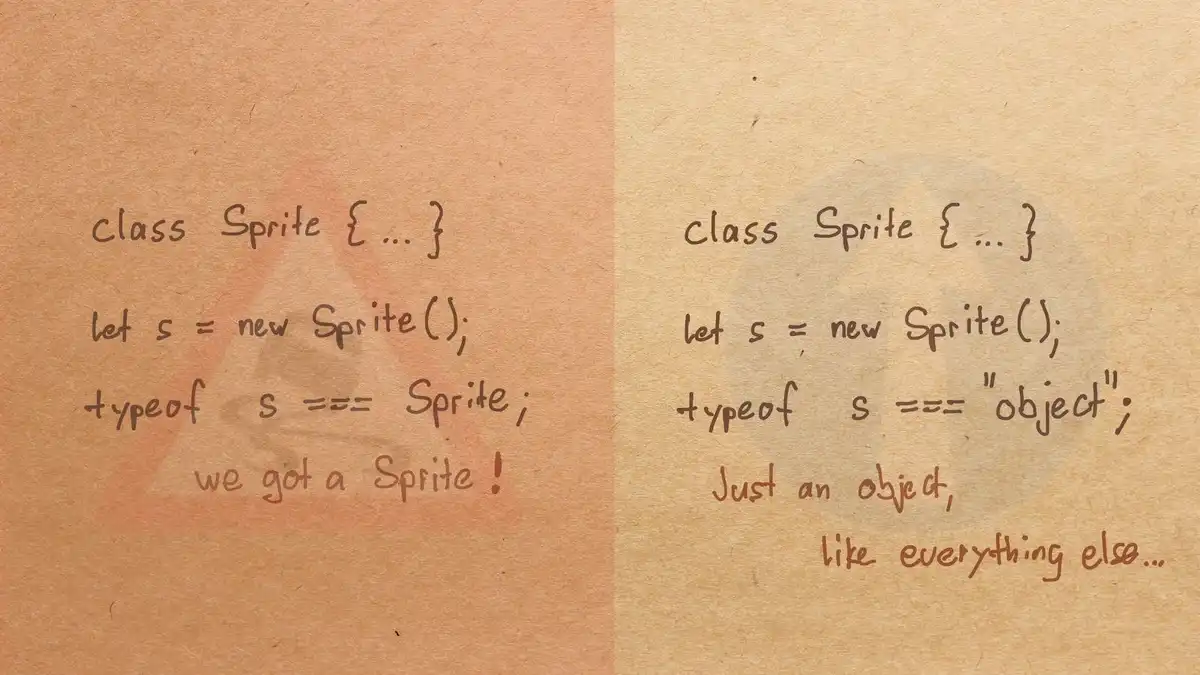 class Sprite {...}
let s = new Sprite();
typeof s === Sprite;
we got a Sprite!
class Sprite {...}
let s = new Sprite();
typeof s === "object";
Just an object,
like everything else...